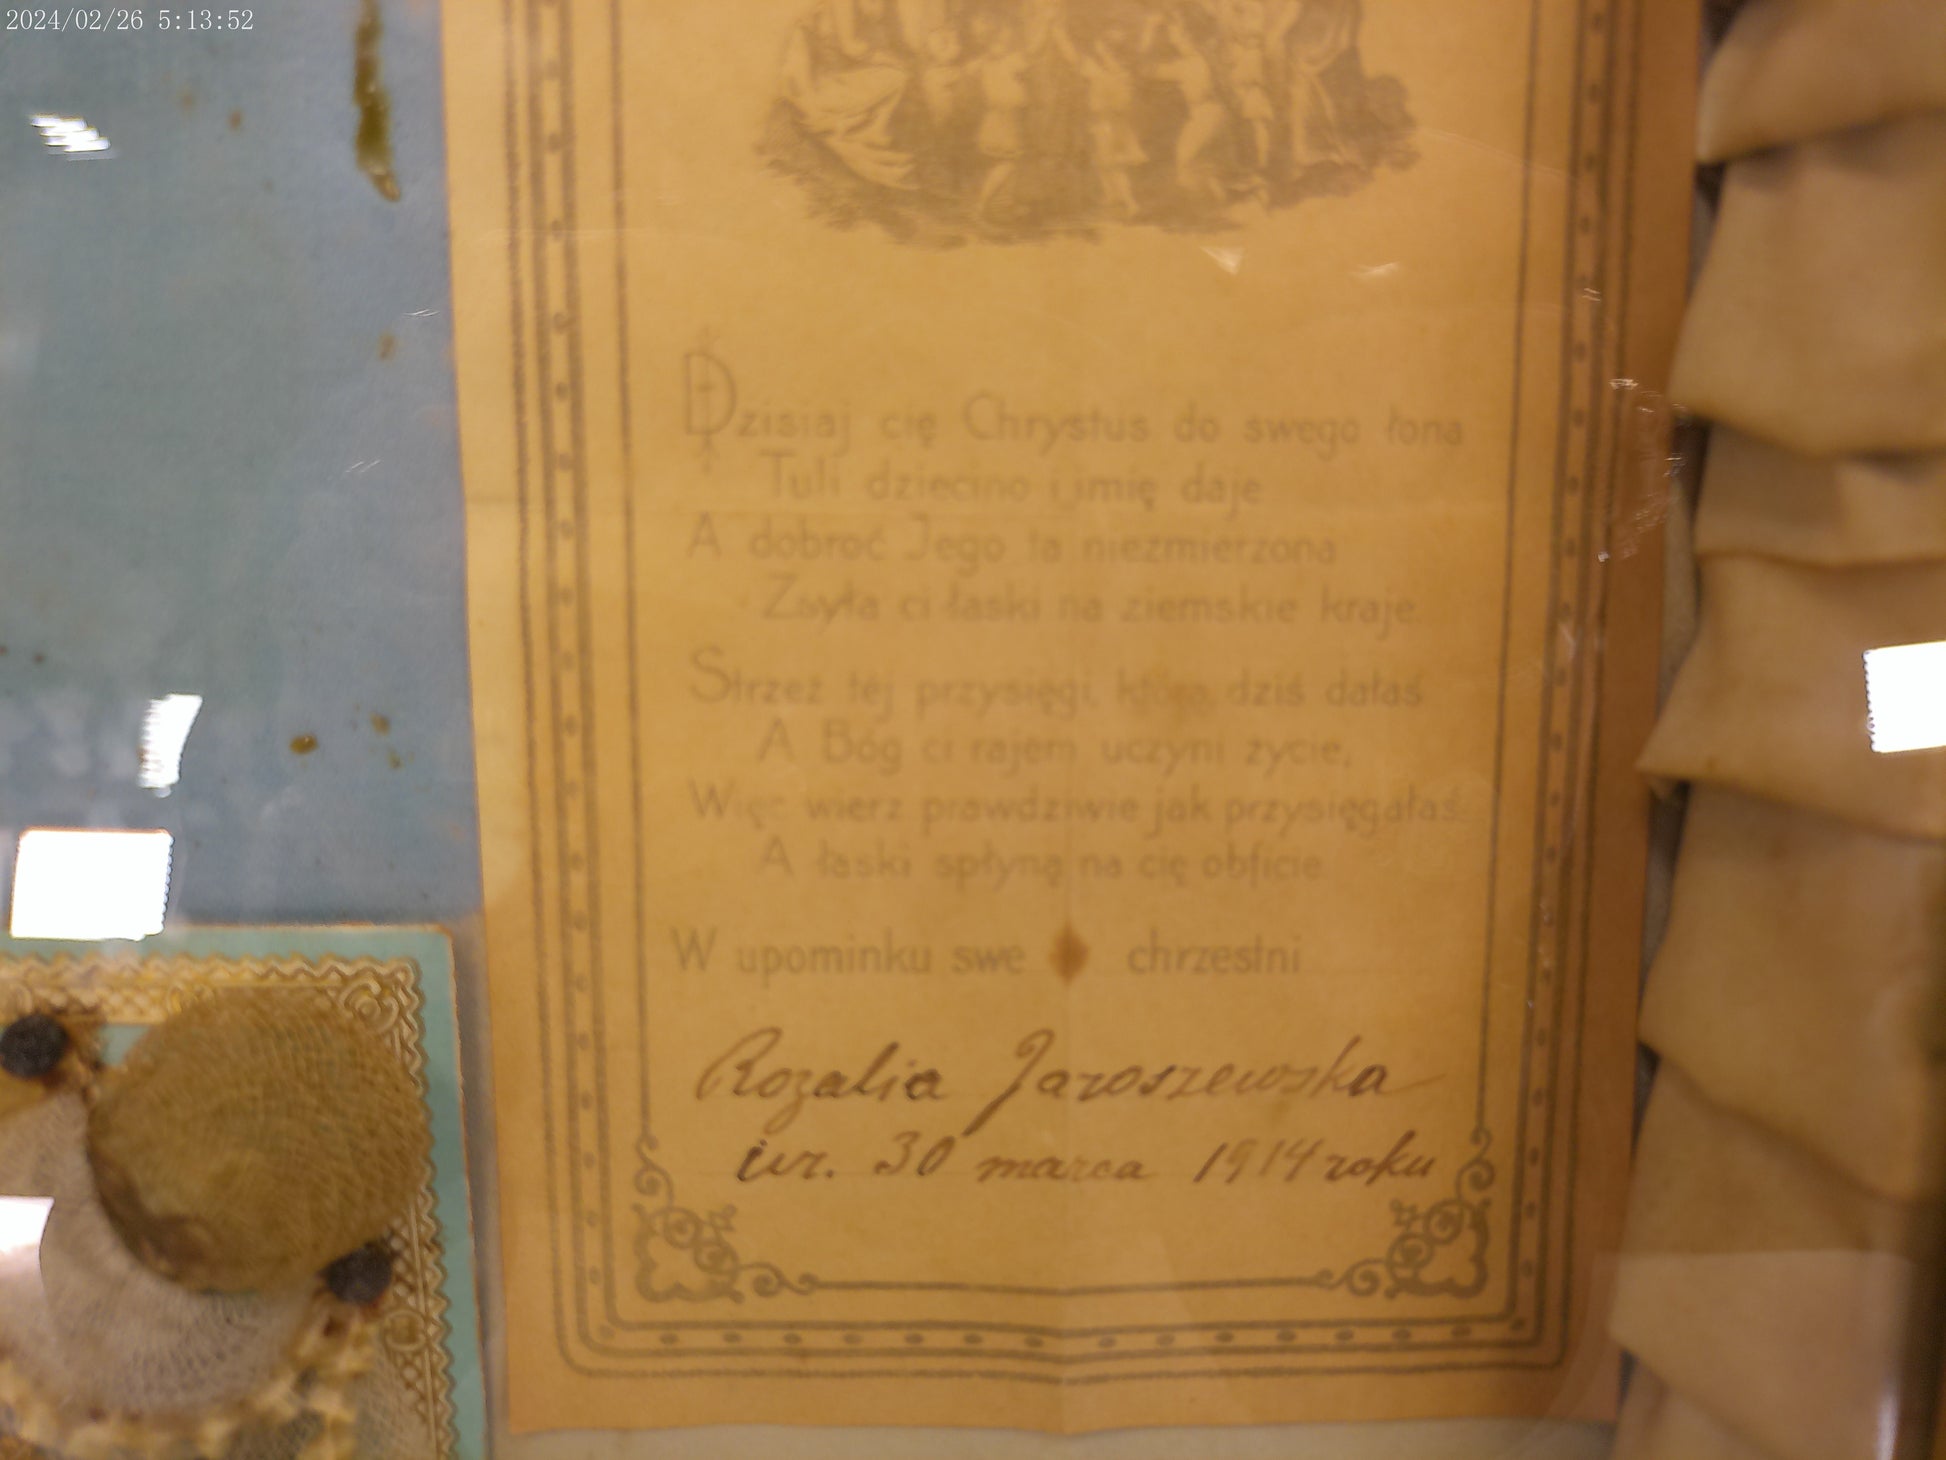 2024/02/26 5:13:52
Dzisiaj cię Chrystus do swego łona
Tuli dziecino i imię daje
A dobroć Jego ta niezmierzona
Zsyła ci łaski na ziemskie kraje.
Strzeż téj przysięgi, którą dziś dałaś
A Bóg ci rajem uczyni życie,
Więc wierz prawdziwie jak przysięgałaś
A łaski spłyną na cię obficie
W upominku swe chrzestni
Rozalia Jaroszewska
ur. 30 marca 1914 roku